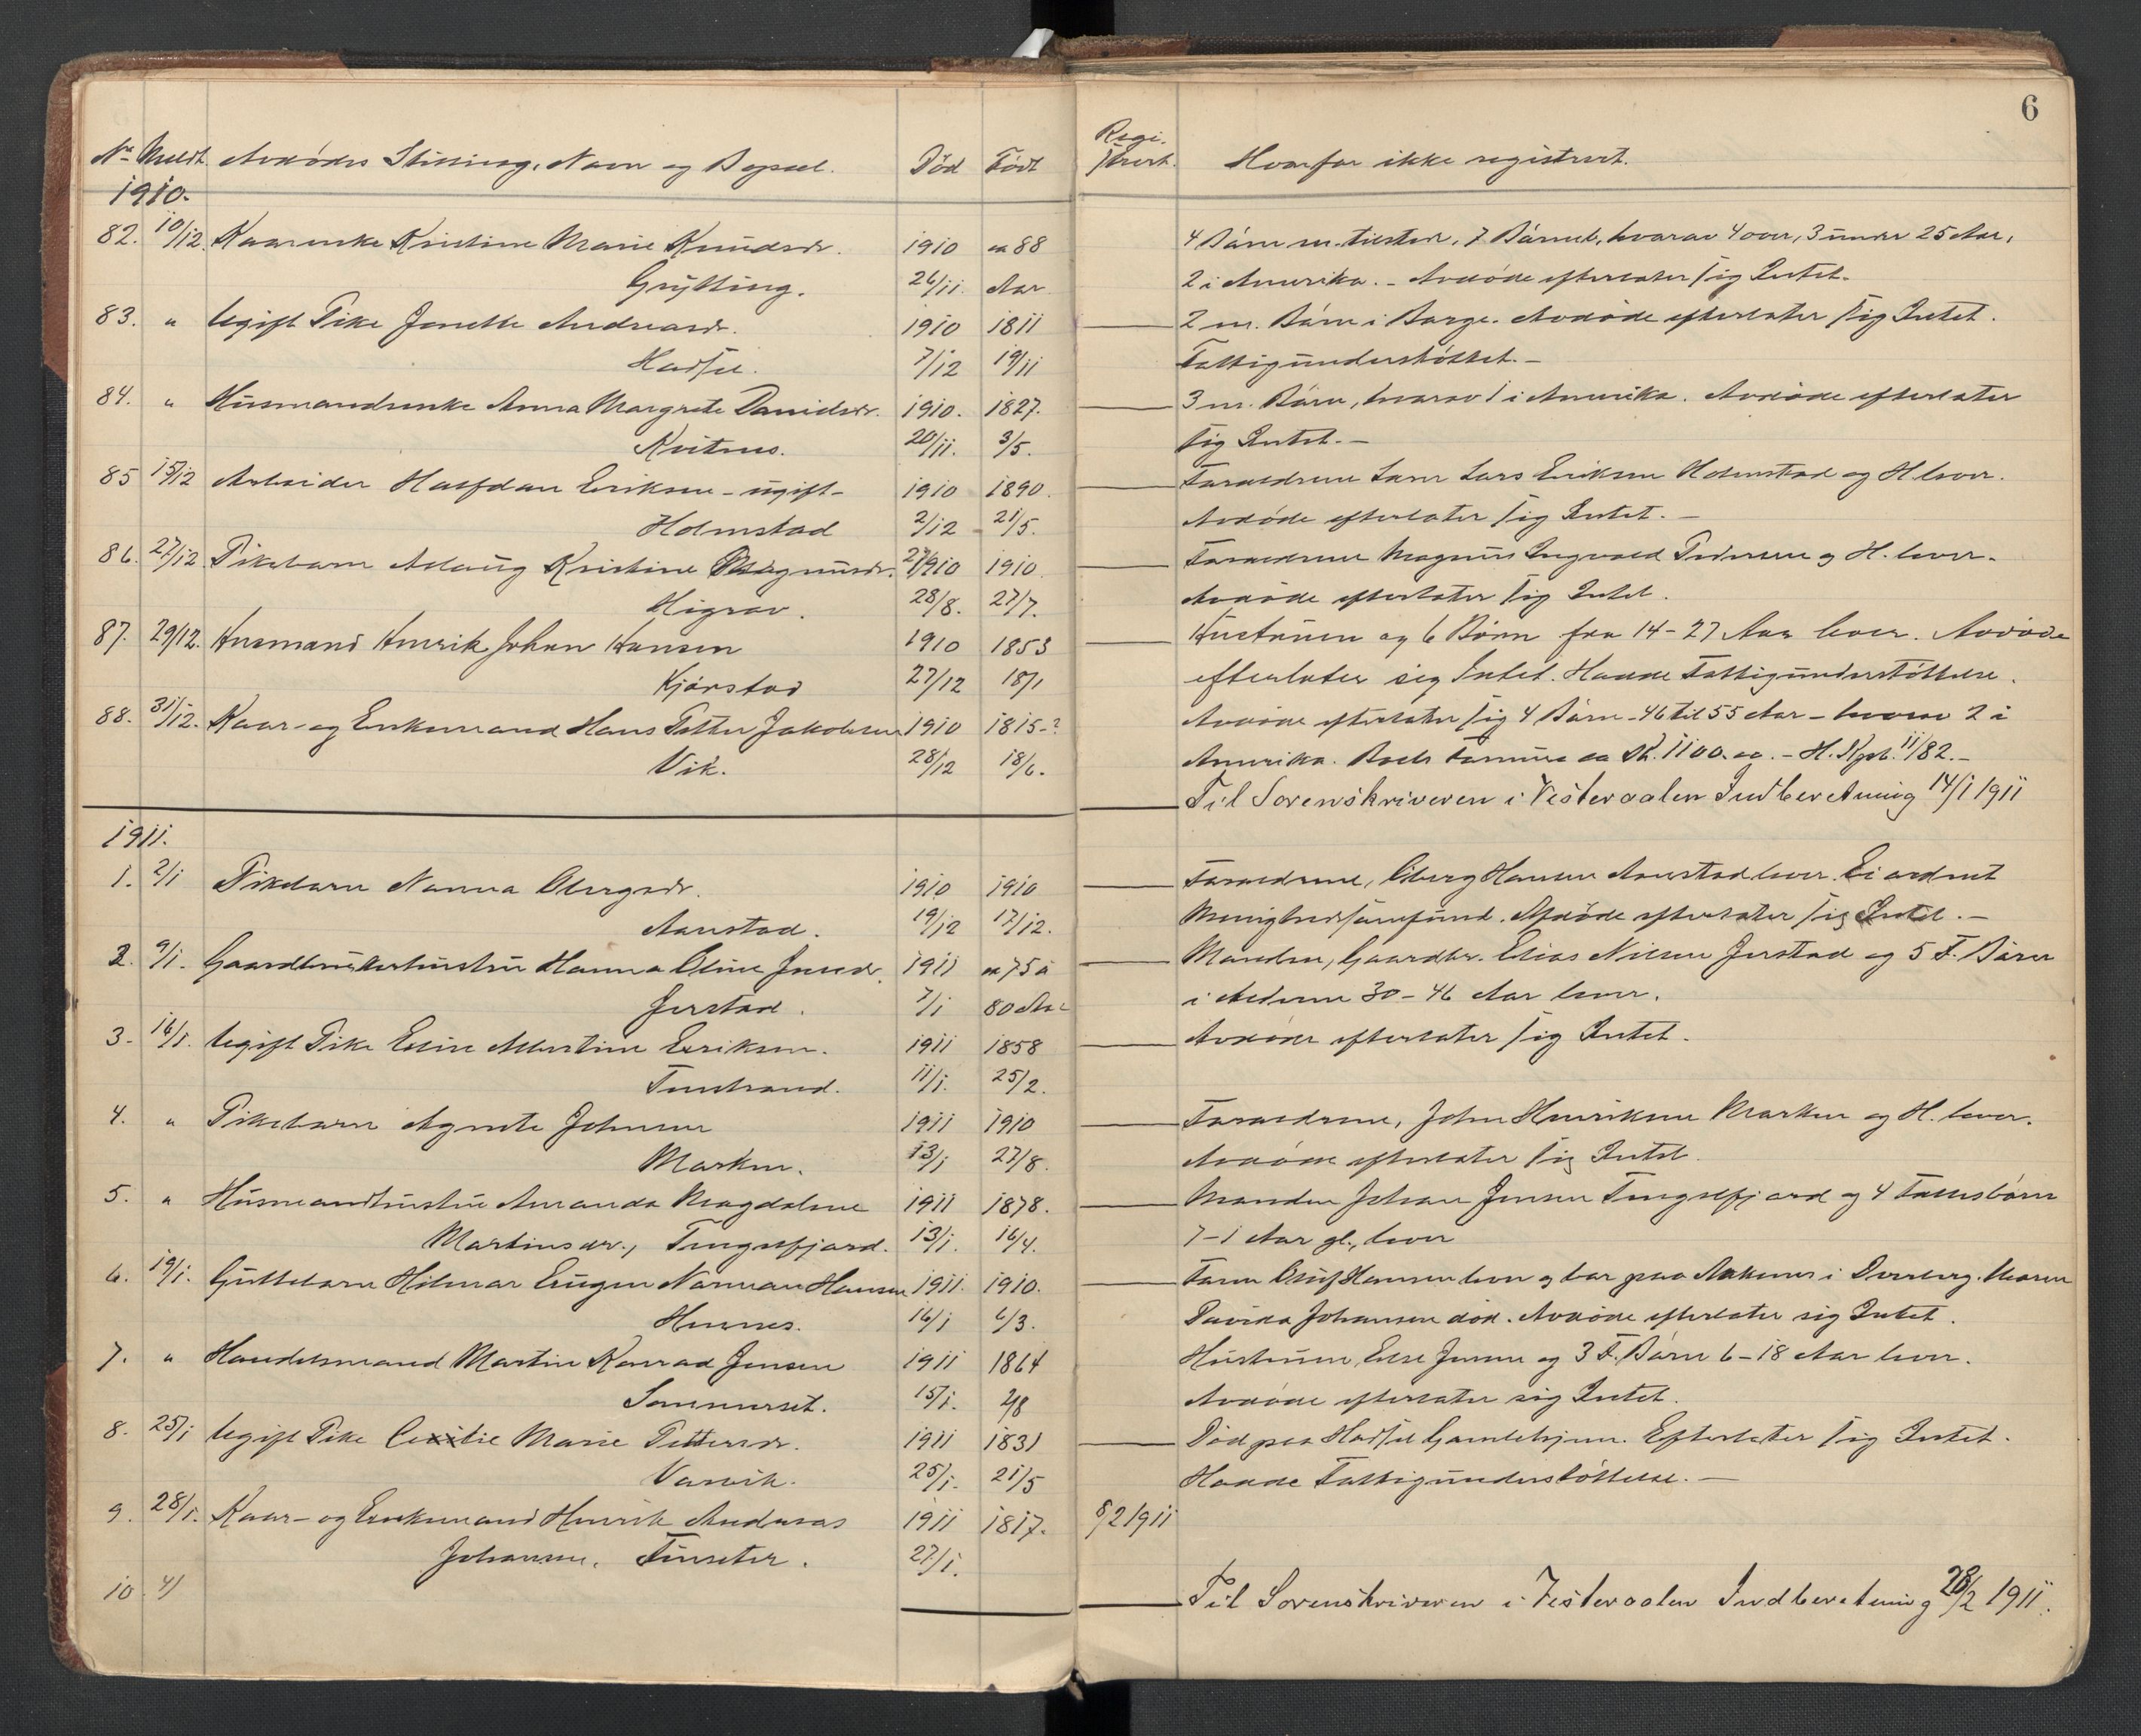 6
Nr. Meldt. Avdødes Stilling, Navn og Bopæl. Død Født Regi-strert. Hvorfor ikke registrert.
1910.
82. 10/12. Kaarenke Kristine Marie Knudsdr. 1910 ca 88 4 Børn m. tilsted, 7 Børneb., hvorav 4 over, 3 under 25 Aar,
Grytting. 26/11. Aar 2 i Amerika. - Avdøde efterlater sig Intet.
83. " Ugift Pike Janette Andreasdr. 1910 1811 2 m. Børn i Borge. Avdøde efterlater sig Intet.
Hadsel. 7/12 19/11 Fattigunderstøttet. -
84. " Husmandsenke Anna Margrete Danielsdr. 1910. 1827. 3 m. Børn, hvorav 1 i Amerika. Avdøde efterlater
Kvitnes. 20/11. 3/5. sig Intet. -
85 15/12 Arbeider Halfdan Eriksen - ugift - 1910 1890. Forældrene Lars Eriksen Holmstad og H. lever.
Holmstad 2/12 21/5. Avdøde efterlater sig Intet. -
86. 27/12 Pikebarn Aslaug Kristine Magnusdr. 1910 1910. Forældrene Magnus Ingvald Pedersen og H. lever.
Higrav. 28/8. 27/7. Avdøde efterlater sig Intet.
87. 29/12. Husmand Henrik Johan Hansen 1910 1853 Hustruen og 6 Børn fra 14-27 Aar lever. Avdøde
Kjørstad 27/12 18/1 efterlater sig Intet. Havde Fattigunderstøttelse.
88. 31/12. Kaar- og Enkemand Hans Petter Jakobsen 1910 1815-? Avdøde efterlater sig 4 Børn - 46 til 55 Aar - hvorav 2 i
Vik. 28/12 18/6. Amerika. Boets Formue ca Kr. 1100.00. - H. Kgb. 11/82. -
Til Sorenskriveren i Vesteraalen Indberetning 14/1 1911
1911.
1. 2/1 Pikebarn Nanna Olbergsdr. 1910 1910 Forældrene, Olberg Hansen Aanstad lever. Ei ordnet
Aanstad. 19/12 17/12. Menighedssamfund. Afdøde efterlater sig Intet. -
2. 9/1. Gaardbrukerhustru Hanna Oline Jensdr. 1911 ca 75 à Manden, Gaardbr. Elias Nilsen Jerstad og 5 F. Børn
Jerstad. 7/1 80 Aar i Alderen 30-46 Aar lever.
3. 16/1. Ugift Pike Eline Albertine Eriksen. 1911 1858 Avdøde efterlater sig Intet.
Tunstrand. 11/1. 25/2.
4. " Pikebarn Agnete Johnsen 1911 1910 Forældrene, John Henriksen Marken og H. lever.
Marken. 13/1 27/8. Avdøde efterlater sig Intet.
5. " Husmandhustru Amanda Magdalene 1911 1878. Manden Johan Jensen Tengelfjord og 4 Fællesbørn
Martinsdr., Tengelfjord. 13/1. 16/4. 7-1 Aar gl., lever
6. 19/1. Guttebarn Hilmar Eugen Norman Hansen 1911. 1910. Faren Oluf Hansen lever og bor paa Aaknes i Dverberg. Moren
Hennes. 16/1 6/3. Davida Johansen død. Avdøde efterlater sig Intet.
7. " Handelsmand Martin Konrad Jensen 1911 1864 Hustruen, Else Jensen og 3 F. Børn 6-18 Aar lever.
Sommerset. 15/1. 2/8 Avdøde efterlater sig Intet.
8. 25/1 Ugift Pike Cecilie Marie Pettersdr. 1911 1831 Død paa Hadsel Gamlehjem. Efterlater sig Intet.
Varvik. 25/1. 21/5 Havde Fattigunderstøttelse. -
9. 28/1. Kaar- og Enkemand Henrik Andreas 1911 1817. 8/2 1911
Johansen, Finseter. 27/1.
10. 4/
Til Sorenskriveren i Vesteraalen Indberetning 28/2 1911.